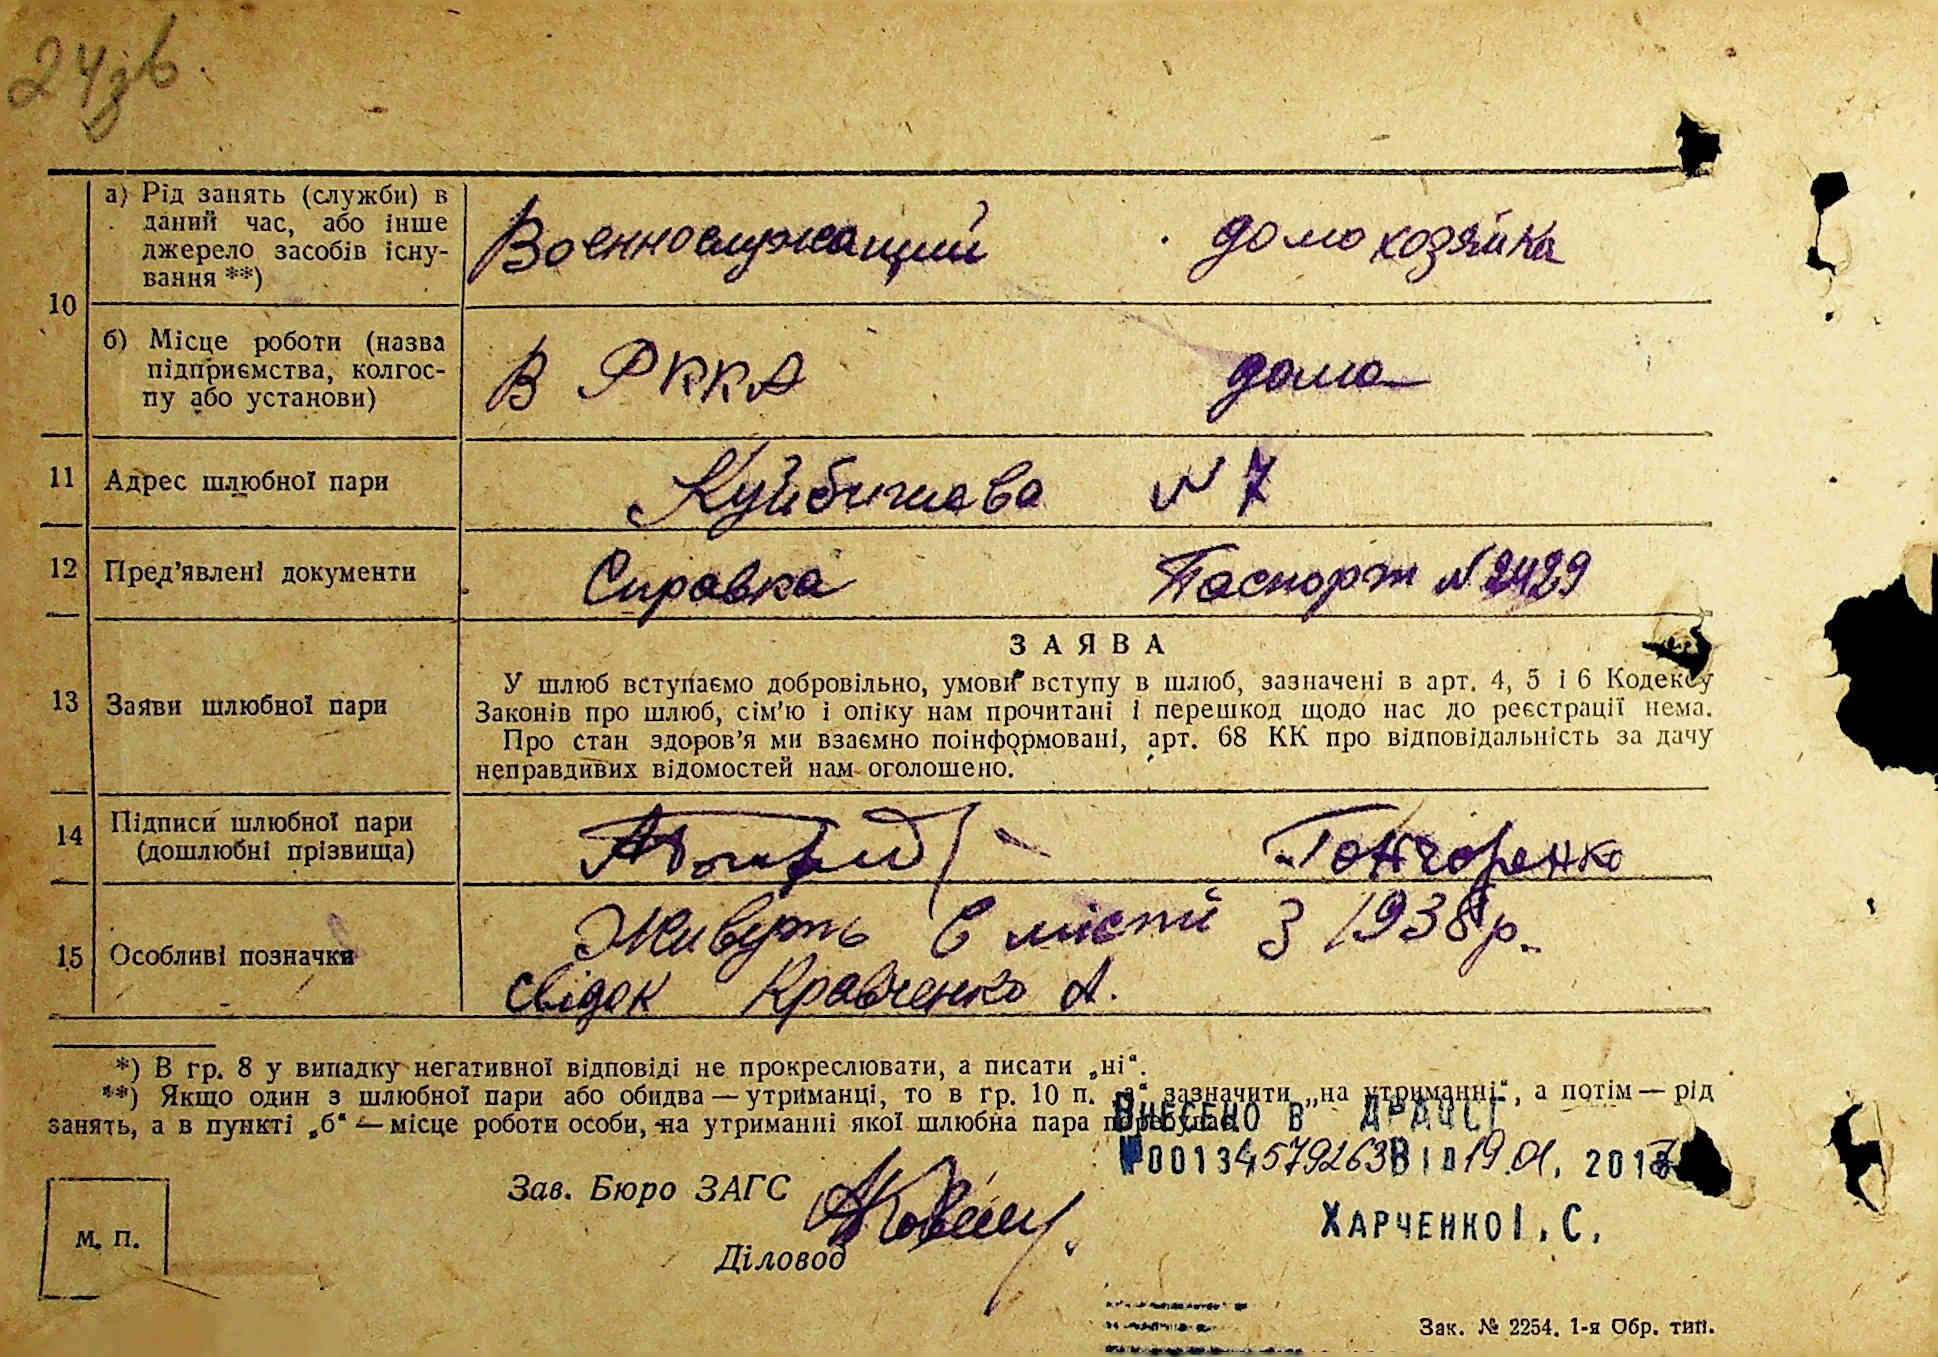 24зв.
а) Рід занять (служби) в
даний час, або інше
джерело засобів існу-
вання **)
Военнослужащий домохозяйка
10
б) Місце роботи (назва
підприємства, колгос-
пу або установи)
В РККА дома
11 Адрес шлюбної пари Куйбишева N 7
12 Пред'явлені документи Справка Паспорт N 2429
ЗАЯВА
13 Заяви шлюбної пари
У шлюб вступаємо добровільно, умови вступу в шлюб, зазначені в арт. 4, 5 і 6 Кодексу
Законів про шлюб, сім'ю і опіку нам прочитані і перешкод щодо нас до реєстрації нема.
Про стан здоров'я ми взаємно поінформовані, арт. 68 КК про відповідальність за дачу
неправдивих відомостей нам оголошено.
14 Підписи шлюбної пари
(дошлюбні прізвища)
Гончоренко
15 Особливі позначки
Живуть в місті З 1938 р.
свідок Кравченко А.
*) В гр. 8 у випадку негативної відповіді не прокреслювати, а писати „ні“.
**) Якщо один з шлюбної пари або обидва — утриманці, то в гр. 10 п. „а“ зазначити „на утриманні“, а потім — рід
занять, а в пункті „б“ — місце роботи особи, на утриманні якої шлюбна пара перебуває.
Внесено в ДРАЦСГ
№00134579263 Від 19.01. 2017
Зав. Бюро ЗАГС
Харченко І. С.
Діловод
М. П.
Зак. № 2254. 1-я Обр. тип.